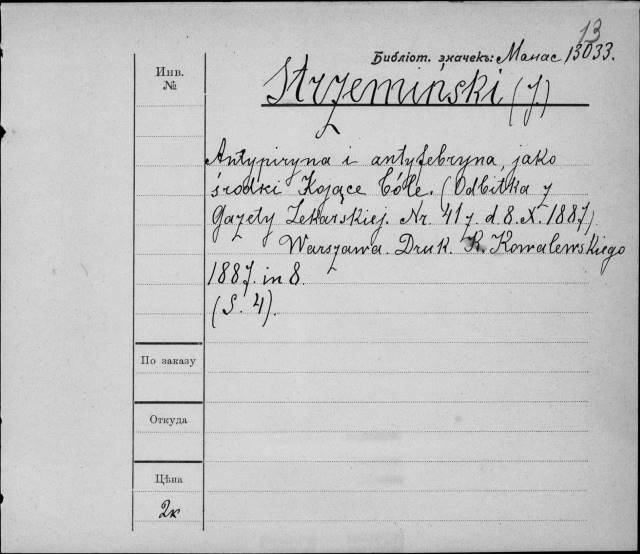 13
Библіот. значекъ: Манас 13033.
Инв.
№
Strzemiński (J.)
Antypiryna i antyfebryna, jako
środki kojące bóle. (Odbitka z
Gazety Lekarskiej. Nr. 41 z d. 8. X. 1887).
Warszawa. Druk. K. Kowalewskiego
1887. in 8.
(S. 4).
По заказу
Откуда
Цѣна
2к